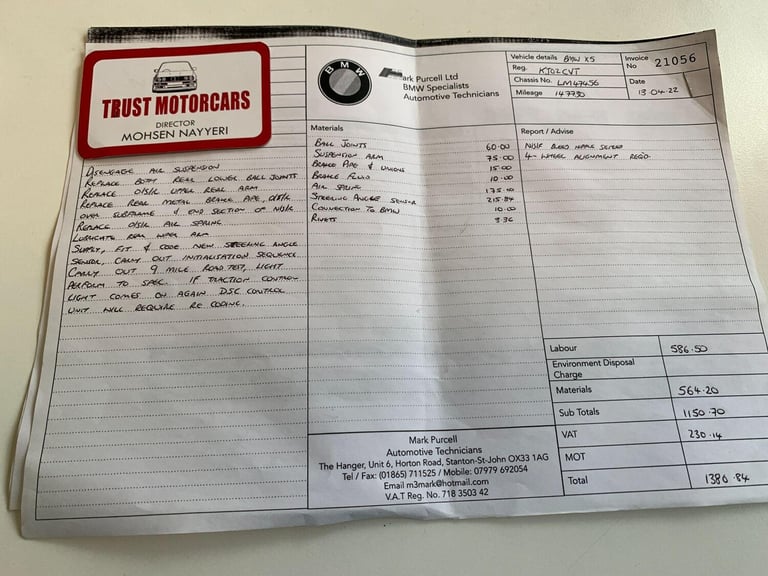 TRUST MOTORCARS
DIRECTOR
MOHSEN NAYYERI
DISENGAGE AIR SUSPENSION
REPLACE BOTH REAR LOWER BALL JOINTS
REPLACE O/S/R UPPER REAR ARM
REPLACE REAR METAL BRAKE PIPE, O/S/R
OVER SUBFRAME & END SECTION OF N/S/R
REPLACE O/S/R AIR SPRING
LUBRICATE REAR ARM
SUPPLY, FIT & CODE NEW STEERING ANGLE
SENSOR, CARRY OUT INITIALISATION SEQUENCE
CARRY OUT 9 MILE ROAD TEST, LIGHT
PERFORM TO SPEC. IF TRACTION CONTROL
LIGHT COMES ON AGAIN DSC CONTROL
UNIT WILL REQUIRE RE CODING.
BMW
ark Purcell Ltd
BMW Specialists
Automotive Technicians
Vehicle details BMW X5
Reg. KT02CVT
Chassis No. LM47456
Mileage 147730
Invoice No 21056
Date 13.04.22
Materials
BALL JOINTS 60.00
SUSPENSION ARM 75.00
BRAKE PIPE & UNIONS 15.00
BRAKE FLUID 10.00
AIR SPRING
STEERING ANGLE SENSOR 215.84
CONNECTION TO BMW 10.00
RIVETS 3.36
Report / Advise
N/S/F BLEED NIPPLE SEIZED
4-WHEEL ALIGNMENT REQ'D
Labour 586.50
Environment Disposal Charge
Materials 564.20
Sub Totals 1150.70
VAT 230.14
MOT
Total 1380.84
Mark Purcell
Automotive Technicians
The Hanger, Unit 6, Horton Road, Stanton-St-John OX33 1AG
Tel / Fax: (01865) 711525 / Mobile: 07979 692054
Email m3mark@hotmail.com
V.A.T Reg. No. 718 3503 42